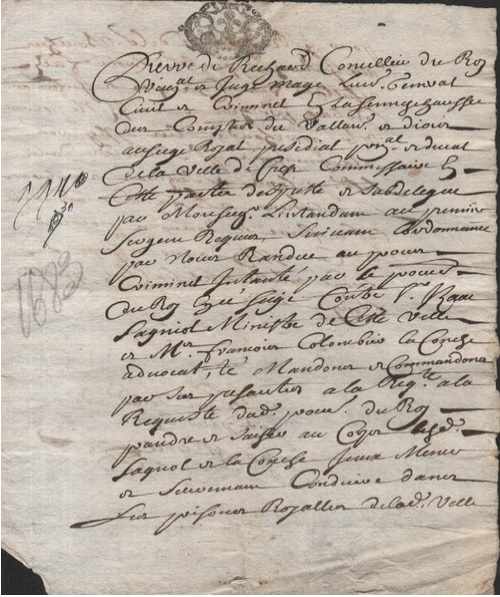 Pierre de Richaud Conseiller du Roy
Juge mage Lieut. General
Civil et Criminel En La Senneschaussee
des Comptes de Vallan. et diois
au siege Royal presidial et ducal
de la Ville de Crest Commissaire En
Cette partie depputte et subdelegue
par Monseig. L'intandant au premier
Sergent Requis, Suivant L'ordonnance
par nous Randue au proces
Criminel Intanté par le procu.
du Roy au siege Contre Sr. Izaac
Sagniol Ministre de Cette Ville
et Mr. François Colombier la Conche
advocat, te Mandons et Commandons
par ses presantes a la Reqte. a la
Requiste dud. procu. du Roy
prandre et saisir au Corps lesd.
Sagnol et la Conche Iceux Mener
et Seurement Conduire dans
Les prisons Royalles de lad. Ville
1683